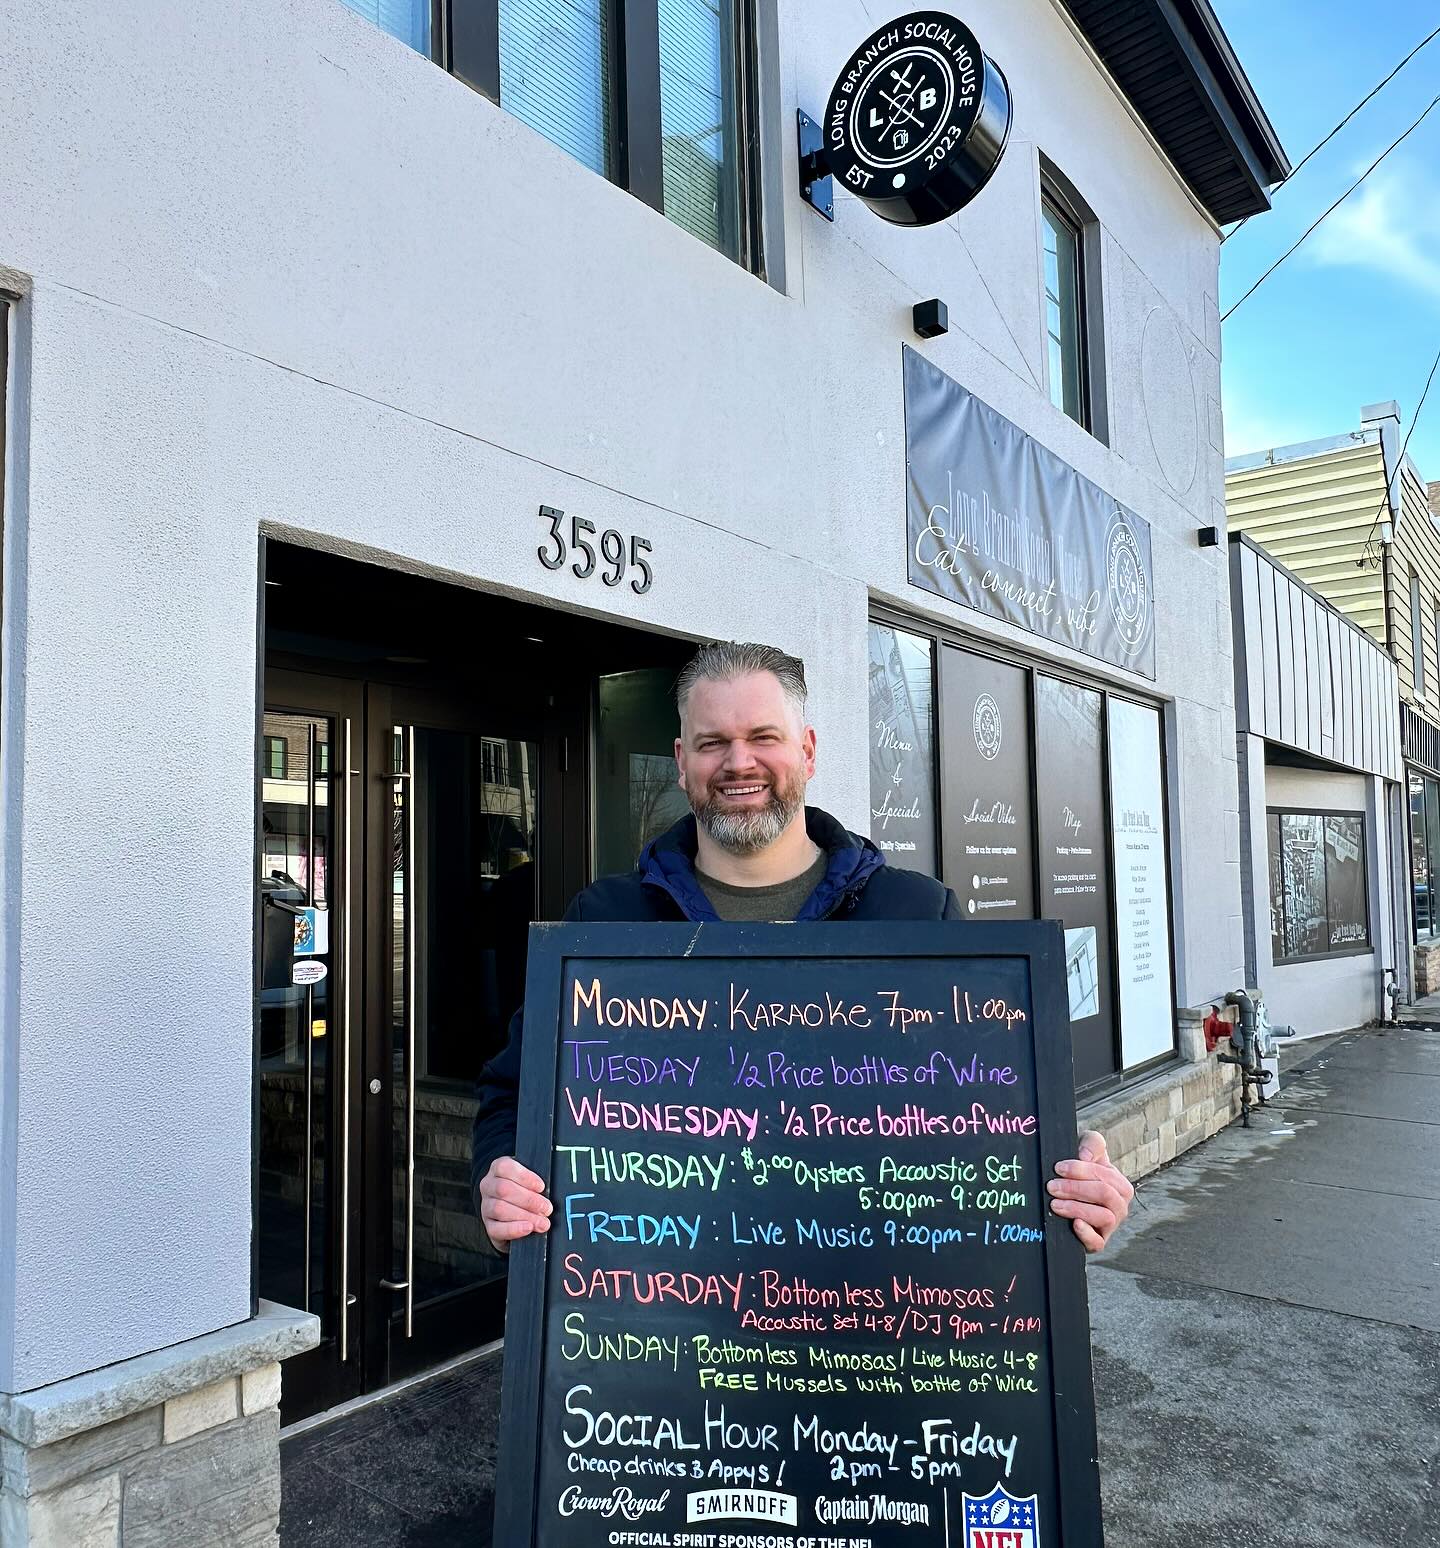 LONG BRANCH SOCIAL HOUSE
L B
EST • 2023
Long Branch Social House
Eat, connect, vibe
LONG BRANCH SOCIAL HOUSE
L B
3595
Menu
&
Specials
Daily Specials
Social Vibes
Follow us for event updates
Map
Parking + Patio Entrance
MONDAY: KARAOKE 7pm - 11:00pm
TUESDAY 1/2 Price bottles of Wine
WEDNESDAY: 1/2 Price bottles of wine
THURSDAY: $2.00 Oysters Accoustic Set
5:00pm - 9:00pm
FRIDAY: Live Music 9:00pm - 1:00AM
SATURDAY: Bottomless Mimosas!
Accoustic Set 4-8/DJ 9pm - 1AM
SUNDAY: Bottomless Mimosas! Live Music 4-8
FREE Mussels with bottle of Wine
SOCIAL HOUR Monday - Friday
Cheap drinks & Appys! 2pm - 5pm
Crown Royal SMIRNOFF Captain Morgan NFL
OFFICIAL SPIRIT SPONSORS OF THE NFL